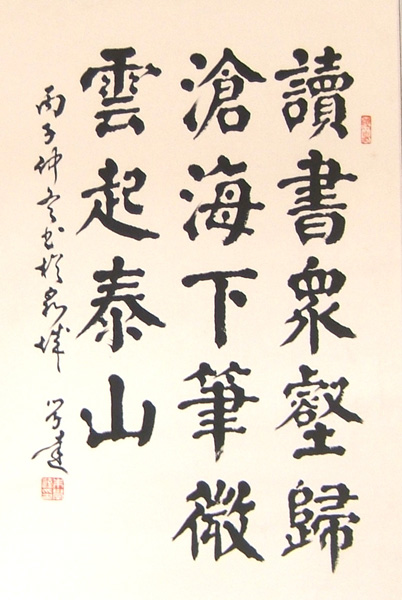 讀書眾壑歸
滄海下筆微
雲起泰山
丙子仲冬書於泉城